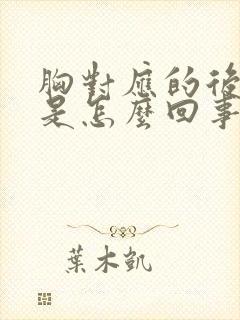 胸對應的後
是怎麼回事
葉木凱